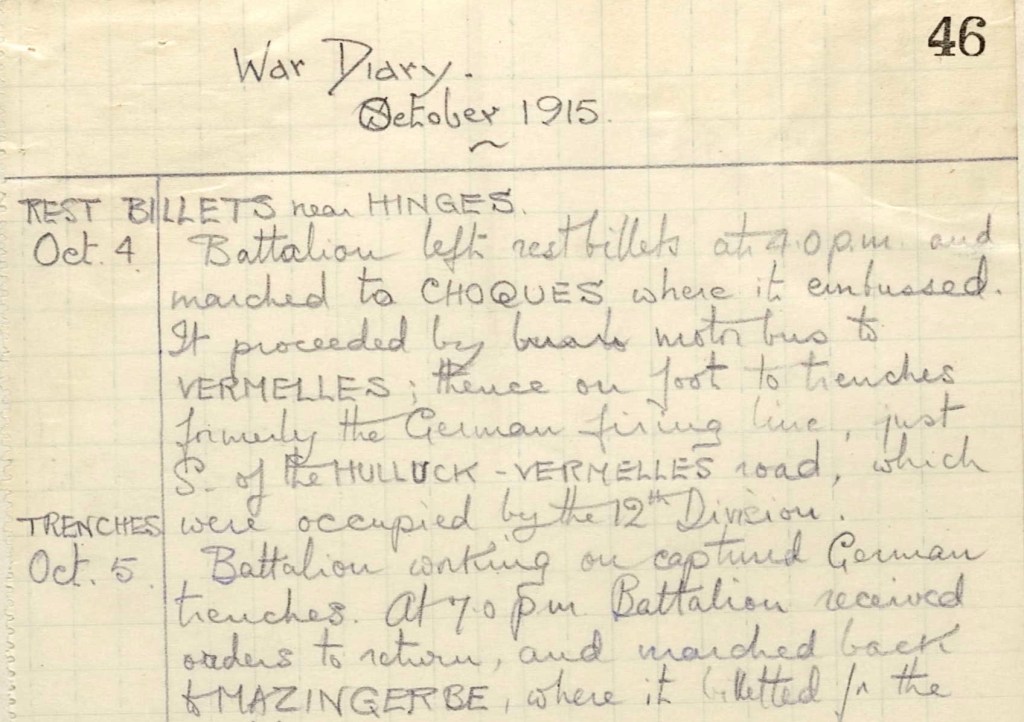 46
War Diary.
October 1915.
REST BILLETS near HINGES.
Oct. 4 Battalion left rest billets at 4.0 p.m. and
marched to CHOQUES where it embussed.
It proceeded by motor bus to
VERMELLES; thence on foot to trenches
formerly the German firing line, just
S. of the HULLUCK - VERMELLES road, which
TRENCHES were occupied by the 12th Division.
Oct. 5. Battalion working on captured German
trenches. At 7.0 pm Battalion received
orders to return, and marched back
to MAZINGERBE, where it billetted for the